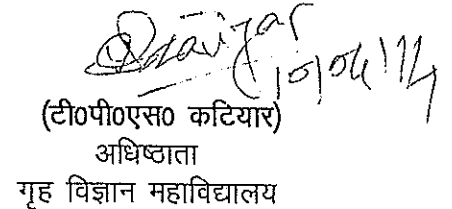 (टी0पी0एस0 कटियार)
अधिष्ठाता
गृह विज्ञान महाविद्यालय